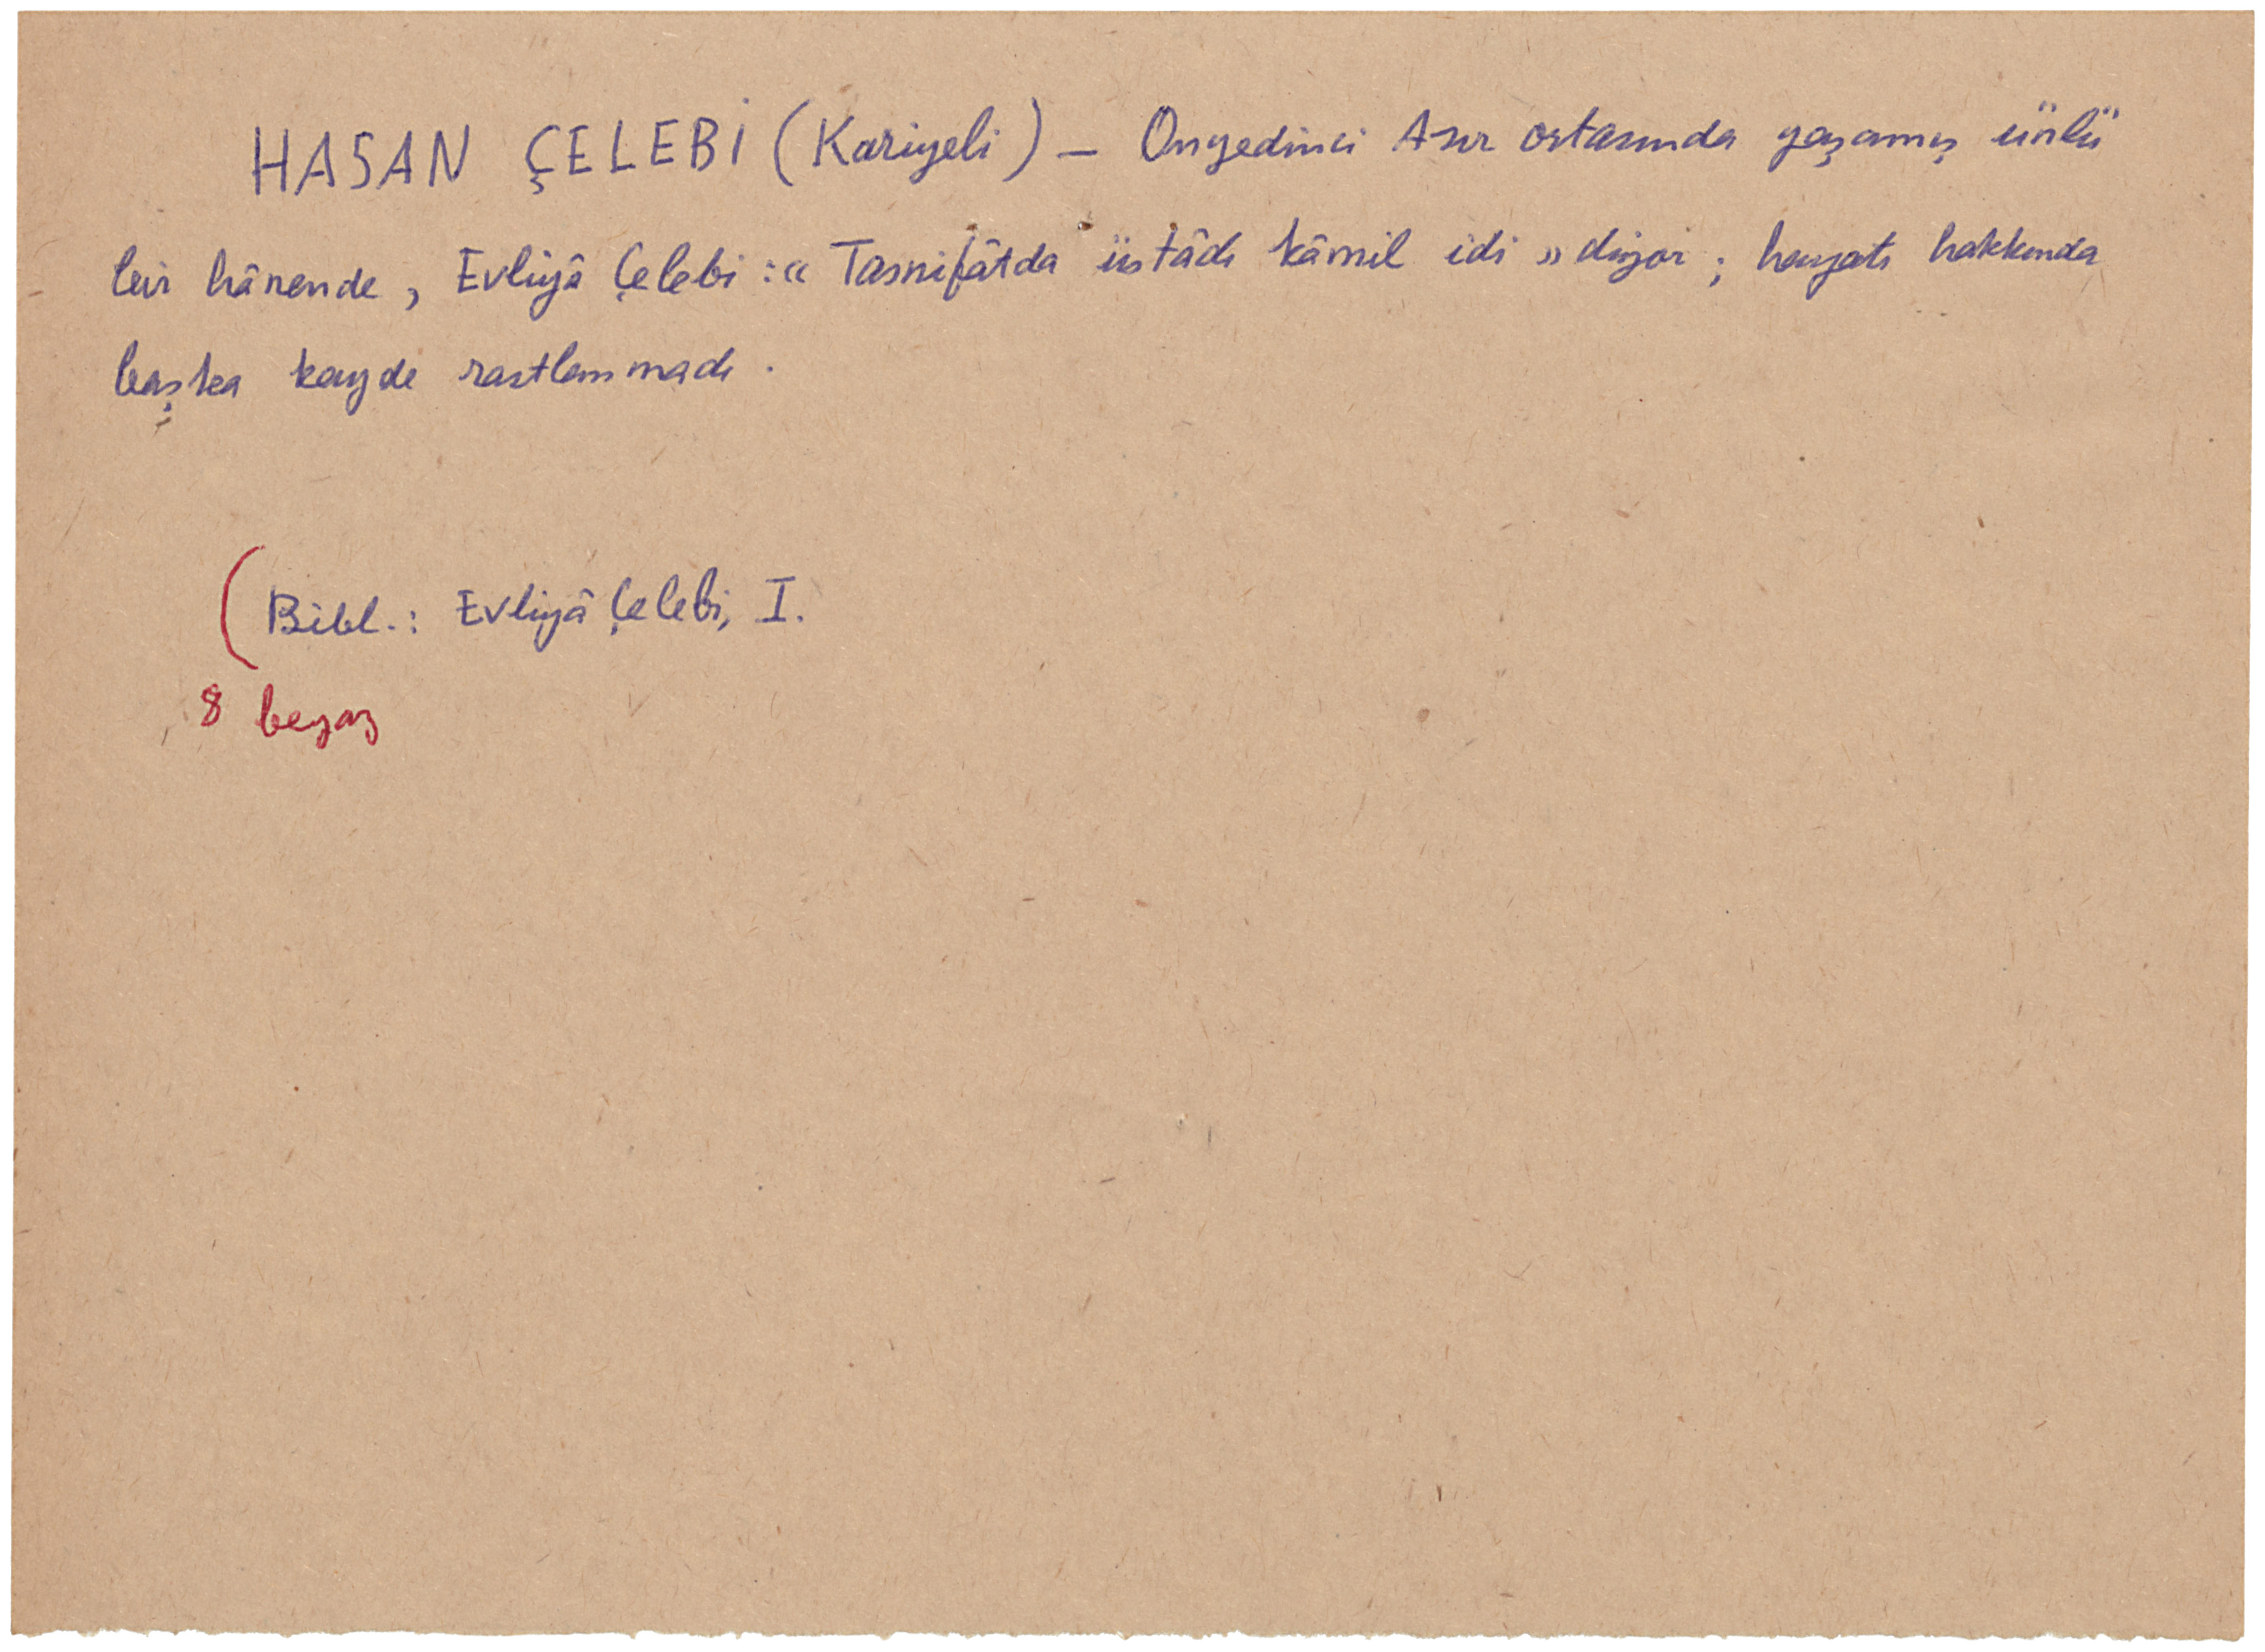 HASAN ÇELEBİ (Kariyeli) — Onyedinci Asır ortasında yaşamış ünlü
bir hânende, Evliyâ Çelebi : « Tasnifâtda üstâdı kâmil idi » diyor ; hayatı hakkında
başka kayde rastlanmadı .
(Bibl. : Evliyâ Çelebi, I.
8 beyaz